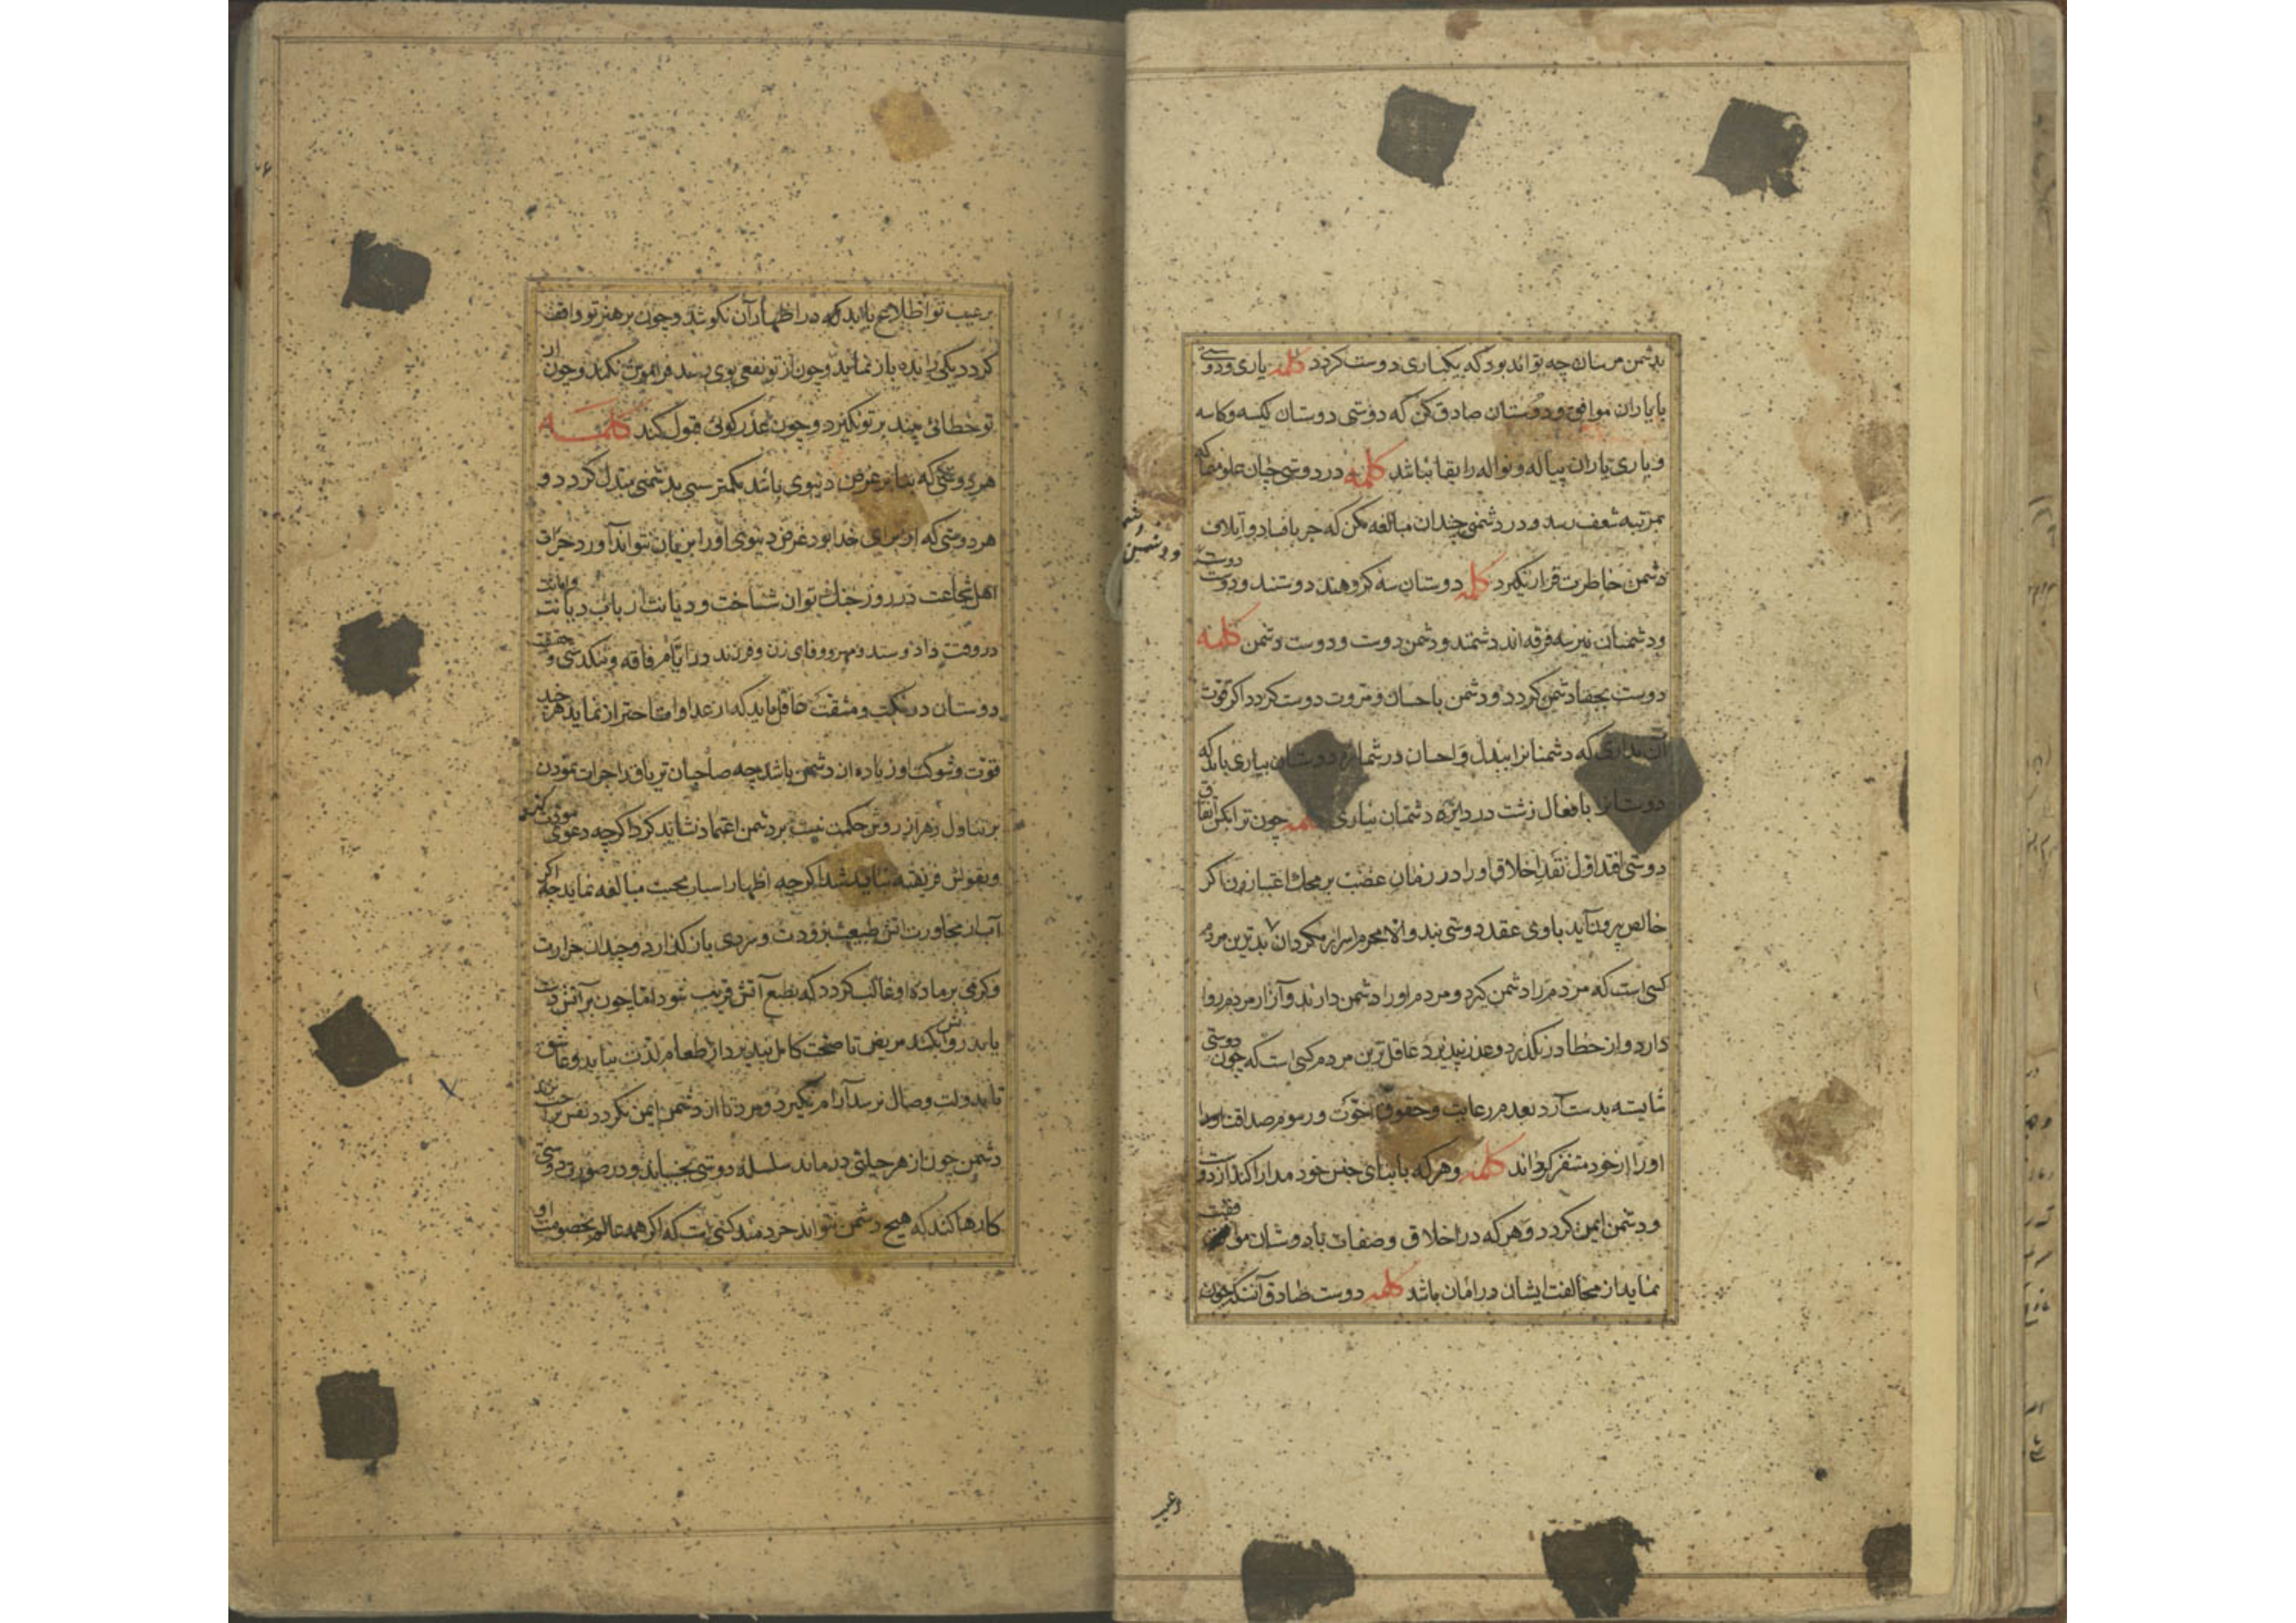 بدشمن مرسان چه تواند بود که یکباری دوست گردد کلمه یاری و دوستی
با یاران موافق و دوستان صادق کن که دوستی دوستان کیسه و کاسه
و یاری یاران پیاله و نواله را بقا نباشد کلمه در دوستی چنان غلو منما که
بمرتبه شعف رسد و در دشمنی چندان مبالغه مکن که جز با فساد و اتلاف
دشمن خاطرت قرار نگیرد کلمه دوستان سه گروهند دوستند و دوست دوست
و دشمن دشمن
و دشمنان نیز سه فرقه اند دشمنند و دشمن دوست و دوست دشمن کلمه
دوست بجفا دشمن گردد و دشمن باحسان و مروت دوست گردد اگر قوت
آن نداری که دشمنانرا ببذل و احسان در شماره دوستان بیاری باید که
دوستانرا بافعال زشت در دایره دشمنان نیاری کلمه چون ترا بکسی اتفاق
دوستی افتد اول نقد اخلاق او را در زمان غضب بر محک اعتبار زن اگر
خالص برون آید باوی عقد دوستی بند والا محرم اسرار مگردان بدترین مردم
کسی است که مردم را دشمن گیرد و مردم او را دشمن دارند و آزار مردم روا
دارد و از خطا در نگذرد و عذر نپذیرد عاقل ترین مردم کسی است که چون دوستی
شایسته بدست آرد بعدم رعایت و حقوق اخوت و رسوم صداقت او را
او را از خود متنفر گرداند کلمه و هرکه با ابنای جنس خود مدارا کند از دوست
و دشمن ایمن گردد و هر که در اخلاق و صفات با دوستان موافقت
نماید از مخالفت ایشان در امان باشد کلمه دوست صادق آنست که چون
برعیب
بر عیب تو اطلاع یابد در اظهار آن نکوشد و چون بر هنر تو واقف
گردد یکی را بده باز نماید و چون از تو نفعی بوی رسد فراموش نکند و چون از
تو خطائی بیند بر تو نگیرد و چون عذر گوئی قبول کند کلمه
هر دوستی که بنا بر غرض دنیوی باشد بکمتر سببی بدشمنی مبدل گردد و
هر دوستی که از برای خدا بود غرض دنیوی او را بزیان نتواند آورد جرات
اهل شجاعت در روز جنک توان شناخت و دیانت ارباب دیانت و امانت
در وقت داد و ستد و مهر و وفای زن و فرزند در ایام فاقه و تنکدستی و حقیقت
دوستان در نکبت و مشقت عاقل باید که از عداوت احتراز نماید هرچند
قوت و شوکت او زیاده از دشمن باشد چه صاحبان تریاق را جرات نمودن
بر تناول زهر از روش حکمت نیست بر دشمن اعتماد نشاید کرد اگرچه دعوی مودت کند
و بقولش فریفته نباید شد اگرچه اظهار اسباب محبت مبالغه نماید چه اگر
آب از مجاورت اتش طبیعت برودت و سردی باز گذارد و چندان حرارت
و گرمی بر ماده او غالب گردد که بطبع آتش قریب شود اما چون بر آتش دست
یابد بکشد مریض تا صحت کامل نپذیرد از طعام لذت نیابد و عاشق
تا بدولت وصال نرسد آرام نگیرد و مرد تا از دشمن ایمن نگردد نفس براحت نزند
دشمن چون از هر حیلتی درماند سلسله دوستی بجنباند و در صورت دوستی
کارها کند که هیچ دشمن نتواند خردمند کسی است که اگر همه عالم بخصومت او